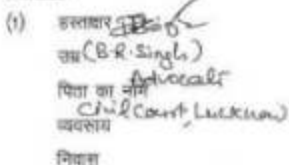 (1) हस्ताक्षर
उम्र (B.R. Singh)
Advocate
पिता का नाम
Civil Court, Lucknow
व्यवसाय
निवास